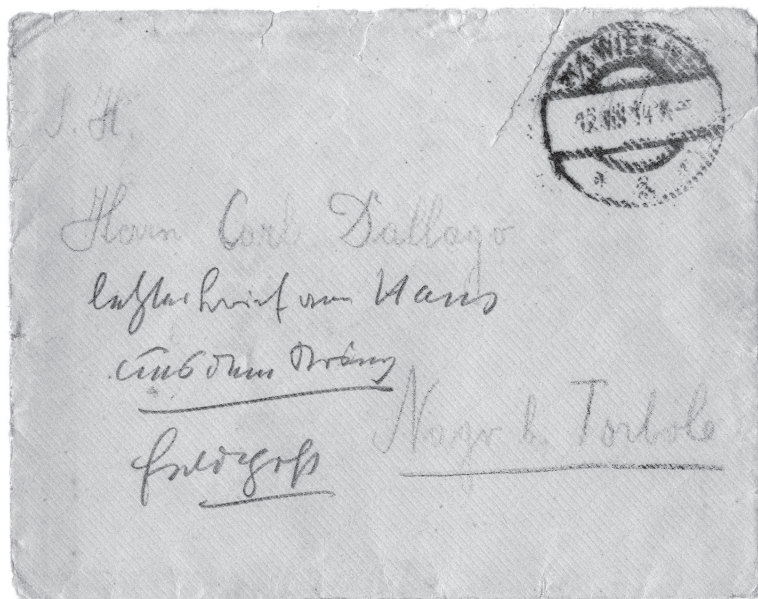 WIEN
S. H.
Herrn Carl Dallago
letzter Brief von Hans
aus dem
Feldpost
Nago b. Torbole